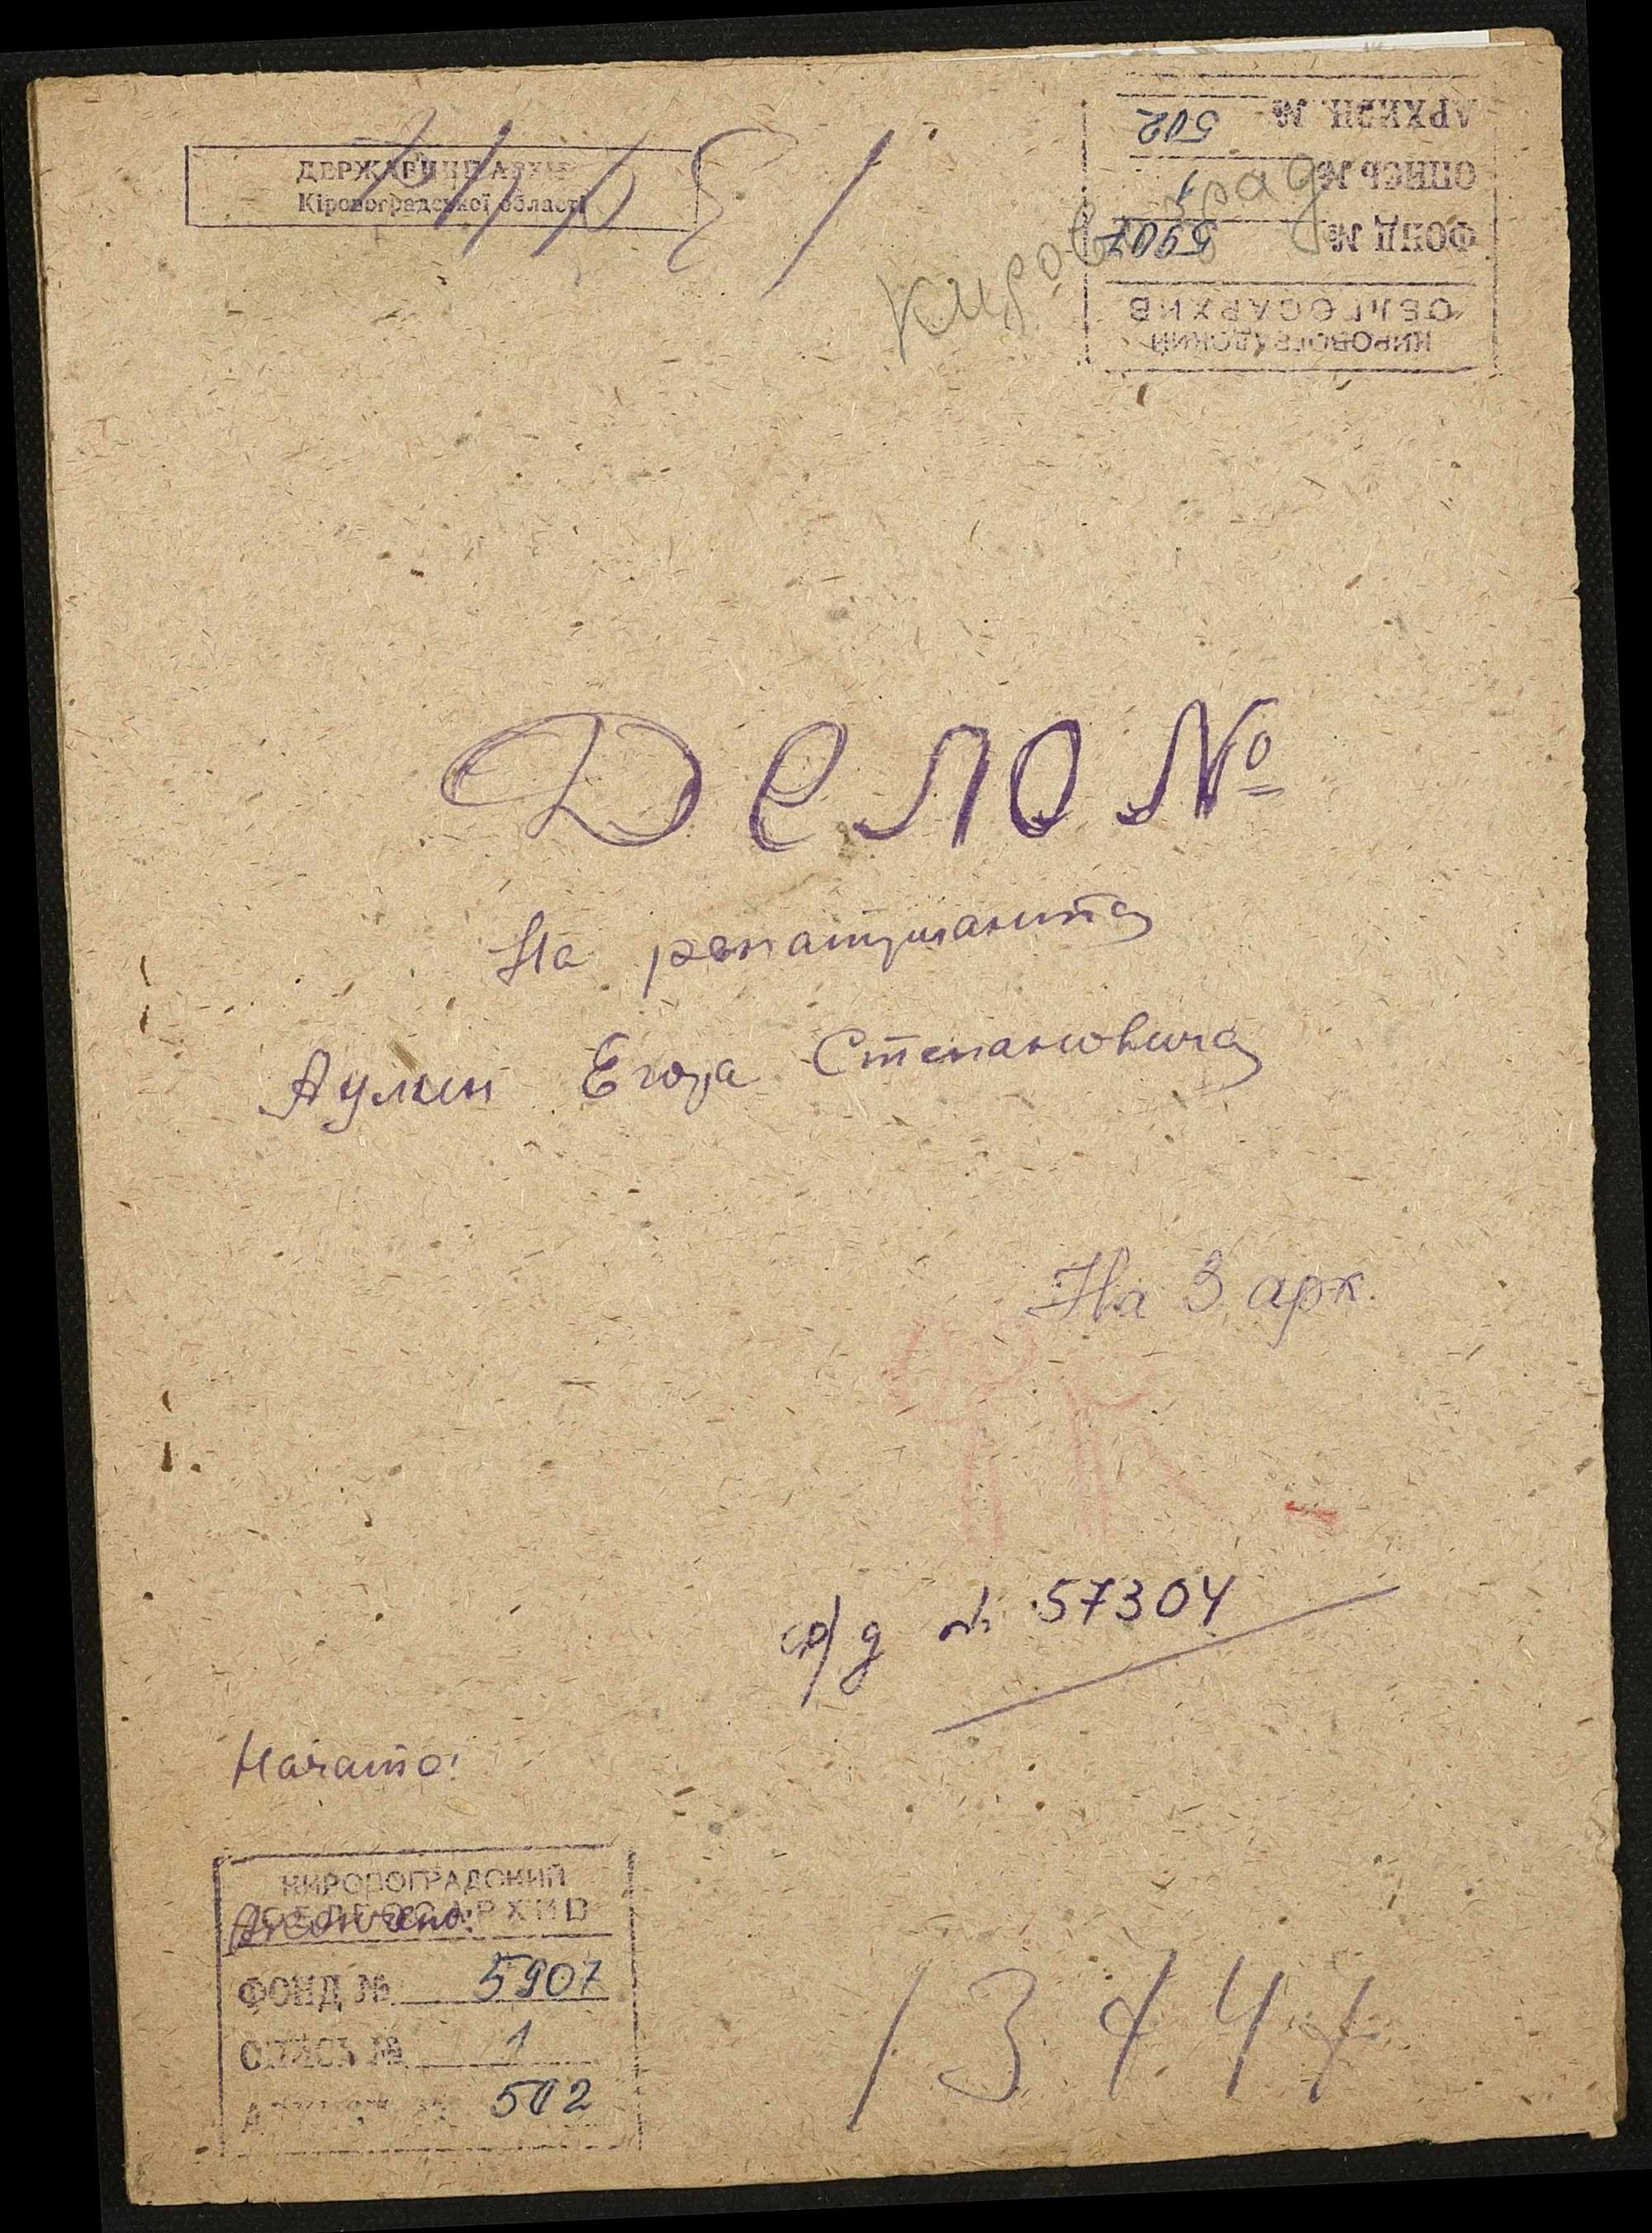 ДЕРЖАВНИЙ АРХІВ
Кіровоградської області
Кировоград
КИРОВОГРАДСКИЙ
ОБЛГОСАРХИВ
ФОНД № 5907
ОПИСЬ № 1
АРХ.ЕД.ХР. № 502
Дело №
На репатрианта
Аулин Егора Степановича
На 3 арк.
ФК
ф/д № 57304
Начато:
КИРОВОГРАДСКИЙ
ОБЛГОСАРХИВ
Окончено:
ФОНД № 5907
ОПИСЬ № 1
502